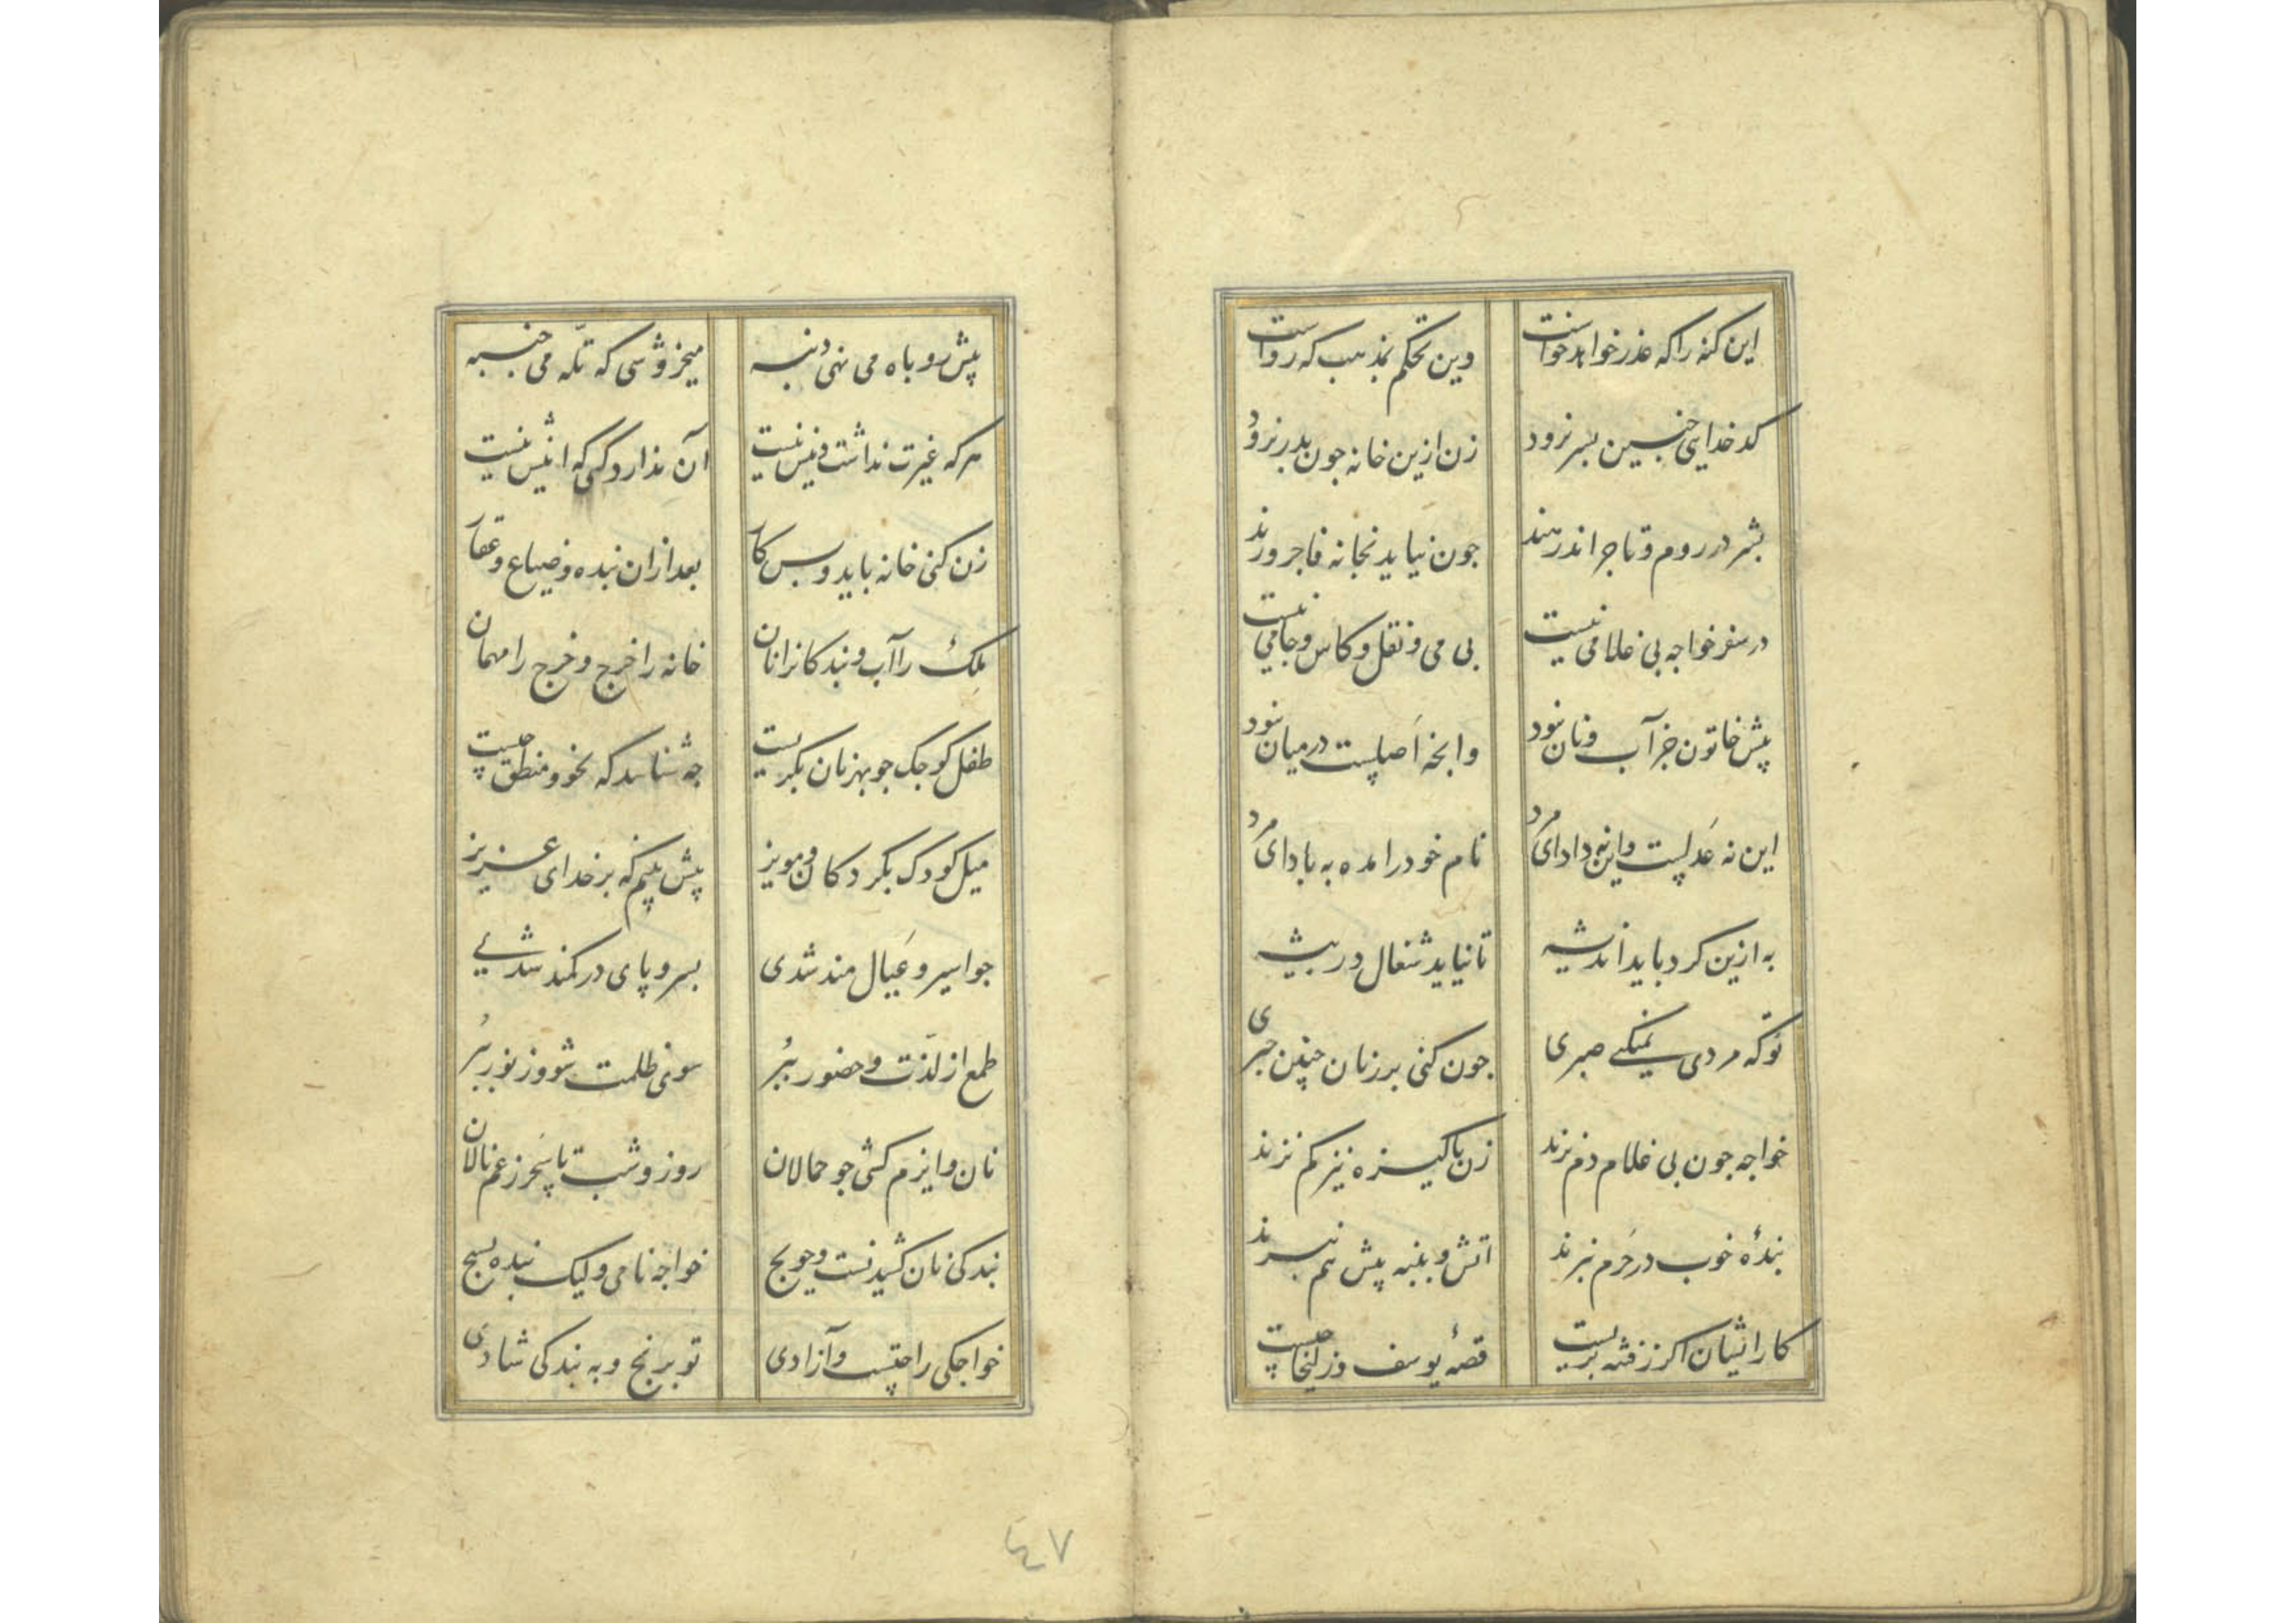 این کنه را که عذر خواهد خواست
وین تحکم بمذهب که رواست
کدخدایی چنین بسر نرود
زن ازین خانه جون بدر نرود
بشر در روم و تاجر اندر هند
جون نیاید بخانه فاجر ورند
در سفر خواجه بی غلامی نیست
بی می و نقل و کاس و جامی نیست
پیش خاتون جز آب و نان نبود
وانچه اصلیست در میان نبود
این نه عدلیست واین نه داد ای مرد
نام خود را مده به باد ای مرد
به ازین کرد باید اندیشه
تا نیاید شغال در بیشه
تو که مردی نمیکنی صبری
جون کنی بر زنان چنین جبری
خواجه جون بی غلام دم نزند
زن پاکیزه نیز کم نزند
بندهٔ خوب در حرم نبرند
اتش و پنبه پیش هم نبرند
کار ایشان اکر ز فتنه بریست
قصهٔ یوسف و زلیخا چیست
پیش روباه می نهی دنبه
میخروشی که تکه می جنبه
هر که غیرت نداشت دینش نیست
آن ندارد کسی که اینش نیست
زن کنی خانه باید و بس کار
بعد ازان بنده و ضیاع و عقار
ملک را آب و بندکانرا نان
خانه را خرج و خرج را مهمان
طفل کوجک جو بهر نان بکریست
جه شناسد که نحو و منطق چیست
میل کودک بکردکان و مویز
بیش بینم که بر خدای عزیز
جو اسیر و عیال مند شدی
بسر و پای در کمند شدی
طمع از لذت و حضور ببر
سوی ظلمت شو و ز نور ببر
نان و ایزم کشی جو حمالان
روز و شب تا سحر ز غم نالان
بندکی نان کشیدنست و حویج
خواجه نامی ولیک بنده بسیج
خواجکی راحتست و آزادی
تو برنج و به بندکی شادی
٤٧